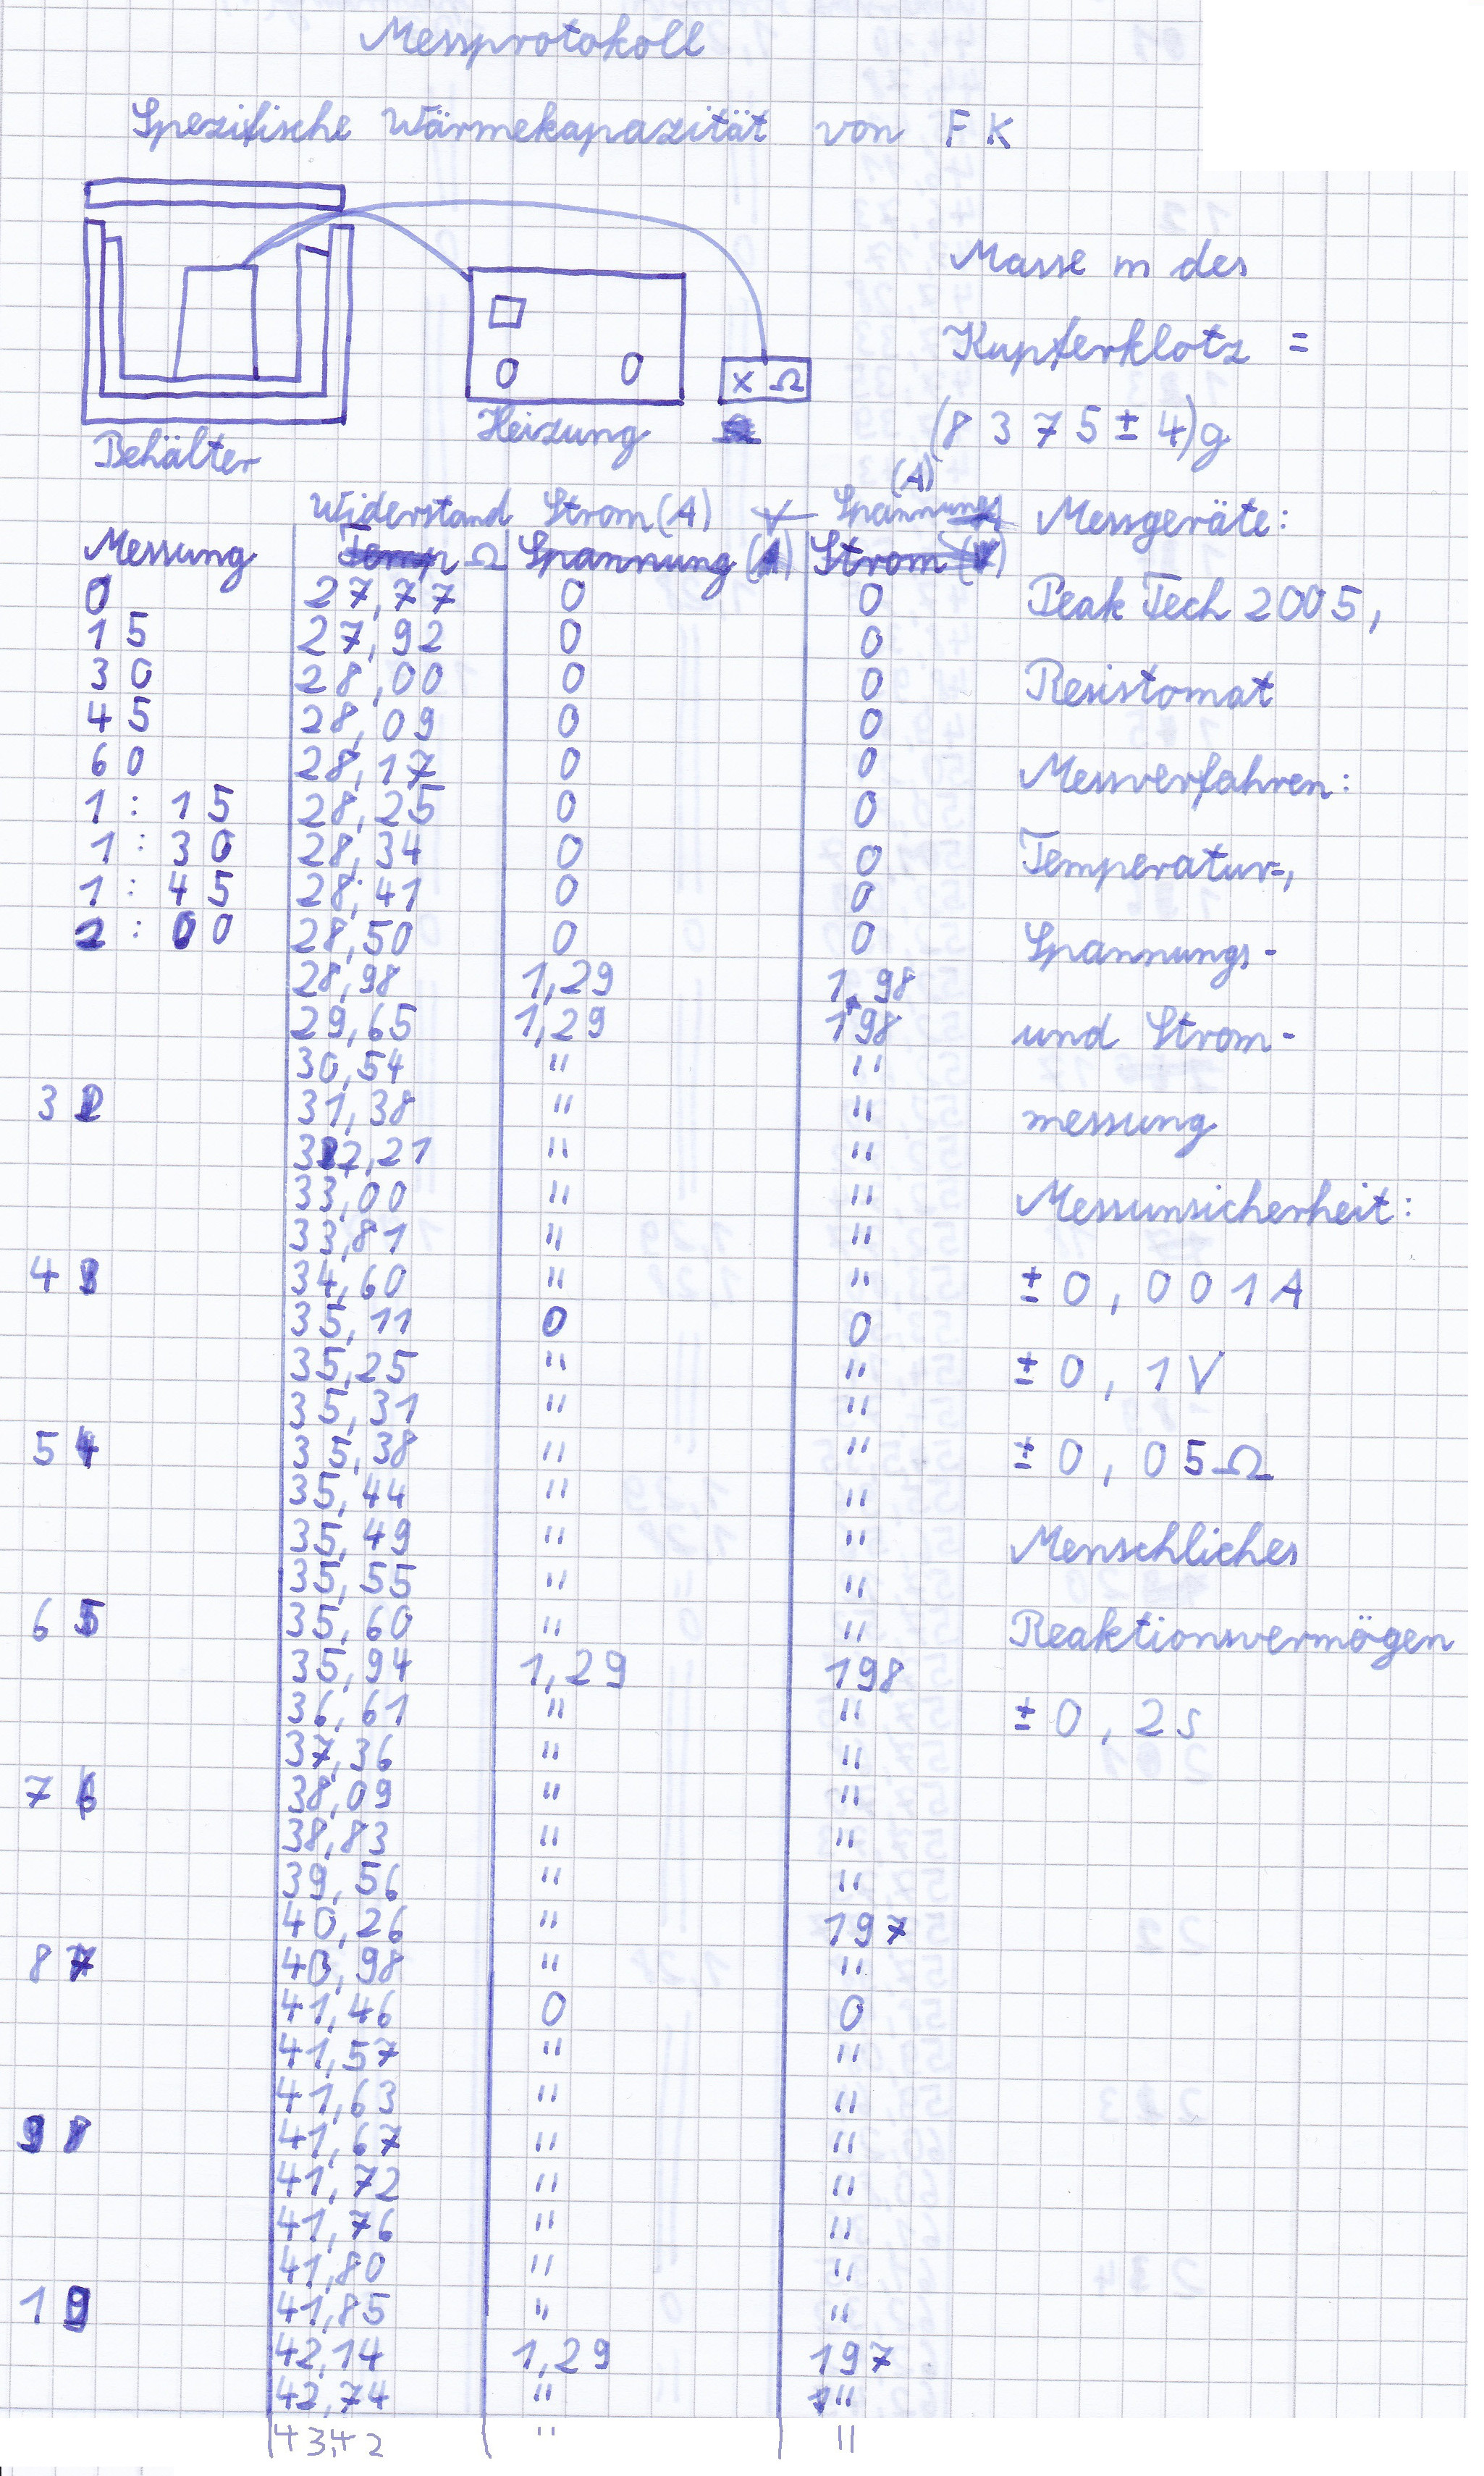 Messprotokoll
Spezifische Wärmekapazität von F K
Masse m des
Kupferklotz =
(8375 ± 4)g
x Ω
Behälter
Heizung
(A)
Widerstand Strom (A) Spannung
Messung Temp Ω Spannung Strom
Messgeräte:
PeakTech 2005,
Resistomat
Messverfahren:
Temperatur-,
Spannungs-
und Strom-
messung
Messunsicherheit:
± 0,001A
± 0,1V
± 0,05Ω
Menschliches
Reaktionsvermögen
± 0,2s
0 27,77 0 0
15 27,92 0 0
30 28,00 0 0
45 28,09 0 0
60 28,17 0 0
1:15 28,25 0 0
1:30 28,34 0 0
1:45 28,41 0 0
2:00 28,50 0 0
28,98 1,29 198
29,65 1,29 198
30,54 " "
3 31,38 " "
32,21 " "
33,00 " "
33,81 " "
4 34,60 " "
35,11 0 0
35,25 " "
35,31 " "
5 4 35,38 " "
35,44 " "
35,49 " "
35,55 " "
6 5 35,60 " "
35,94 1,29 198
36,61 " "
37,36 " "
7 6 38,09 " "
38,83 " "
39,56 " "
40,26 " 197
8 7 40,98 " "
41,46 0 0
41,57 " "
41,63 " "
9 8 41,67 " "
41,72 " "
41,76 " "
41,80 " "
1 9 41,85 " "
42,14 1,29 197
42,74 " "
43,42 " "